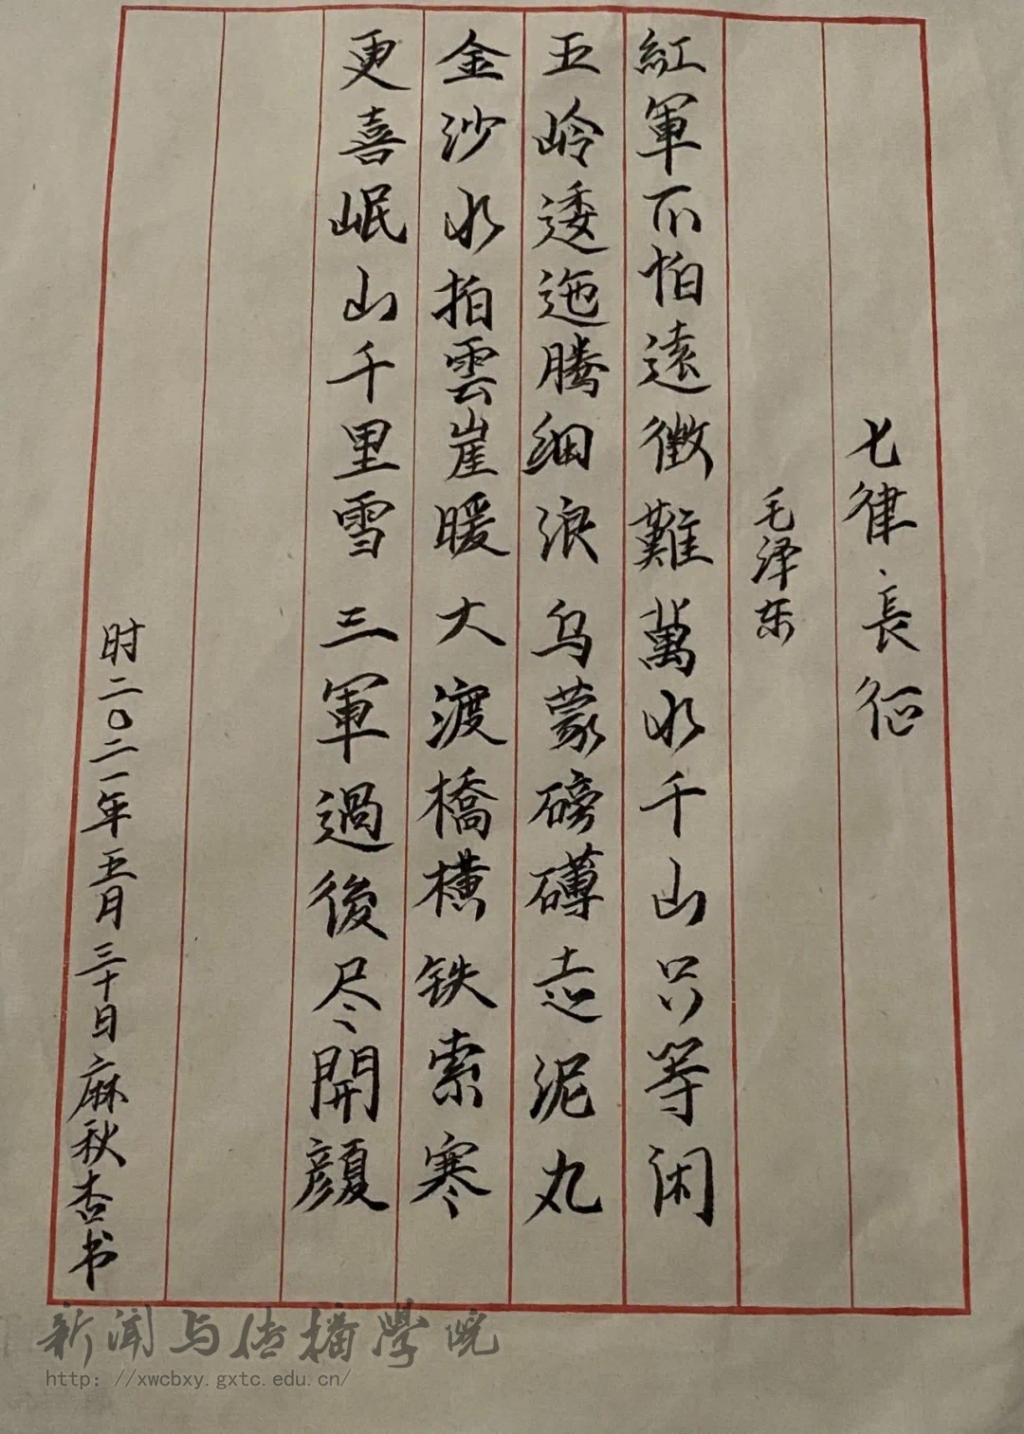 七律·長征
毛泽东
紅軍不怕遠徵難萬水千山只等闲
五岭逶迤腾细浪乌蒙磅礴走泥丸
金沙水拍雲崖暖大渡橋横铁索寒
更喜岷山千里雪三軍過後尽開颜
时二〇二一年五月三十日麻秋杏书
新闻与传播学院
http: //xwcbxy.gxtc.edu.cn/